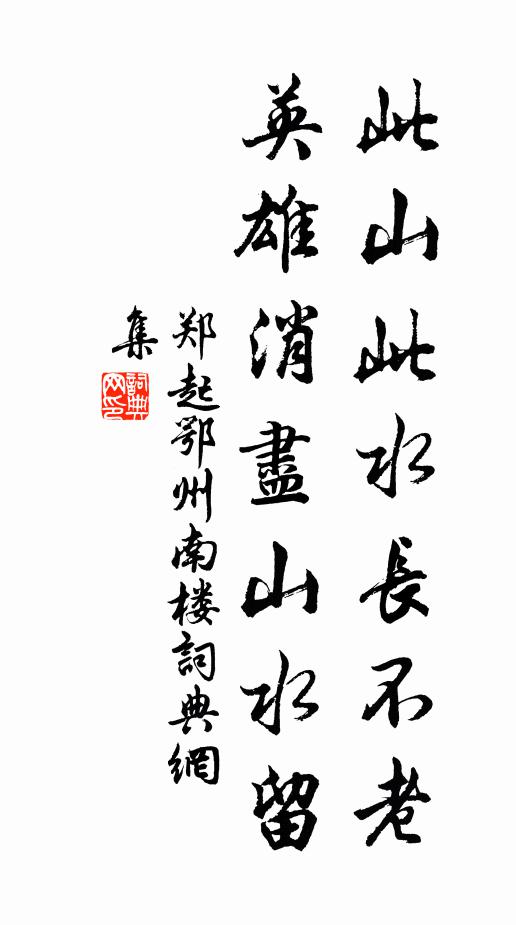 此山此水長不老
英雄消盡山水留
郑起鄂州南楼詞典網
集
詞典
网印